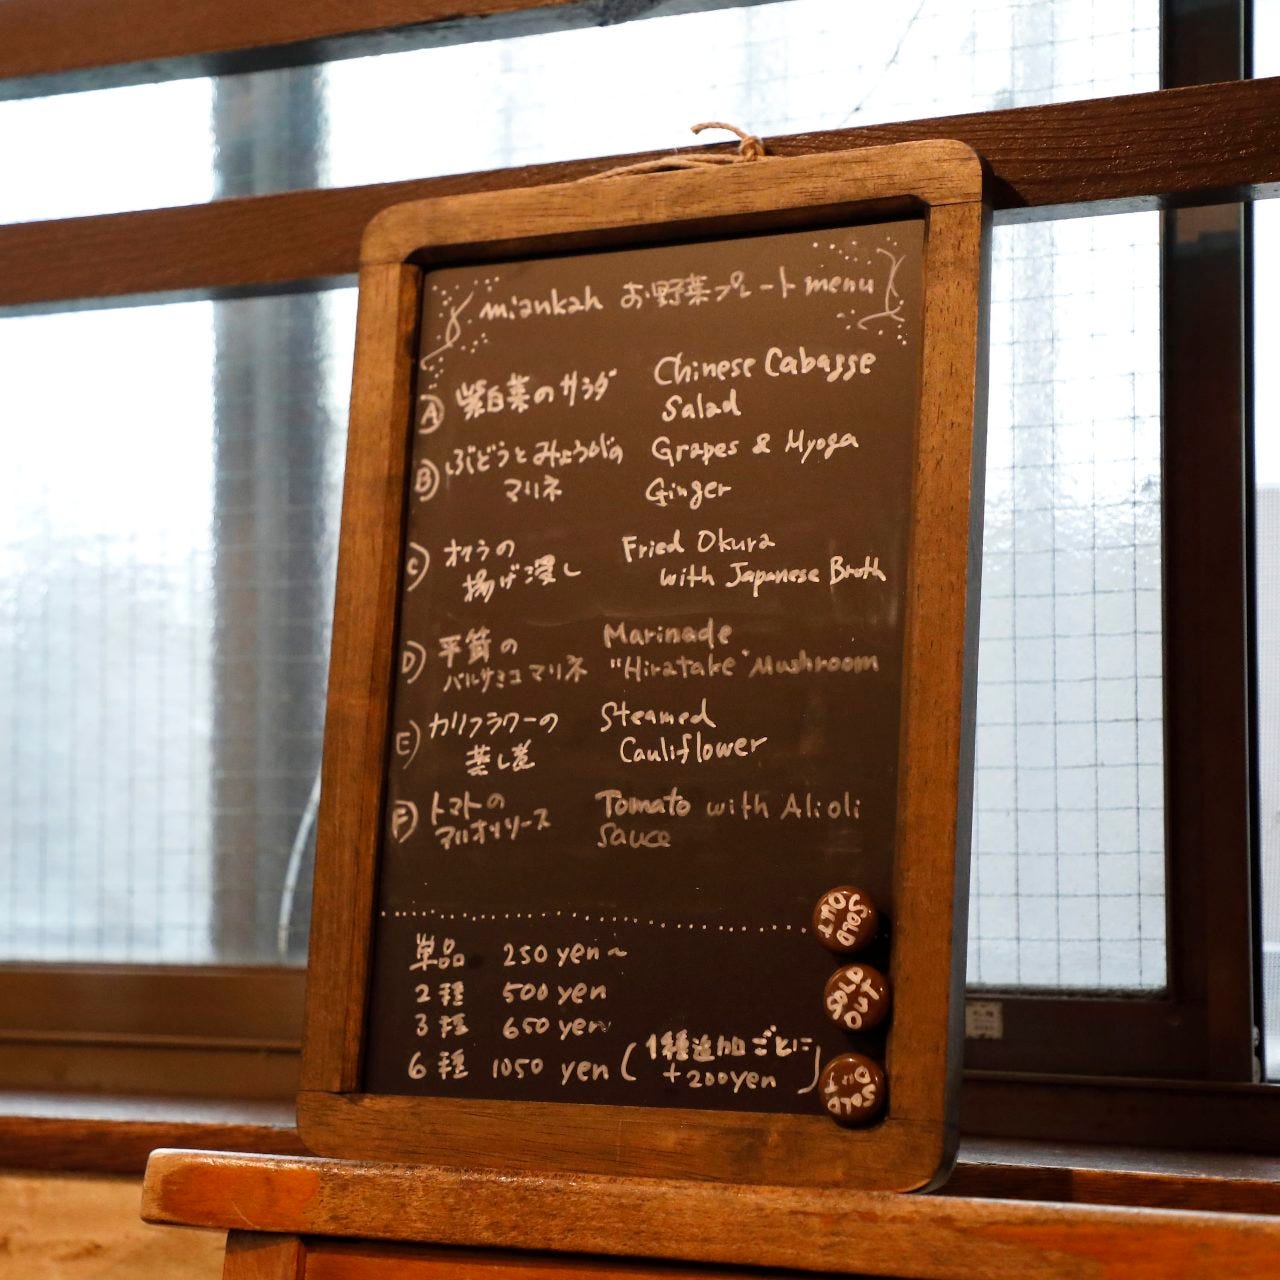 miankah お野菜プレート menu
Ⓐ 紫白菜のサラダ Chinese Cabagge
Salad
Ⓑ ぶどうとみょうがの Grapes & Myoga
マリネ Ginger
Ⓒ オクラの Fried Okura
揚げ浸し with Japanese Broth
Ⓓ 平茸の Marinade
バルサミコマリネ "Hiratake" Mushroom
Ⓔ カリフラワーの Steamed
蒸し煮 Cauliflower
Ⓕ トマトの Tomato with Alioli
アリオリソース Sauce
単品 250 yen~
2種 500 yen
3種 650 yen
6種 1050 yen (1種追加ごとに
+200yen)
SOLD OUT
SOLD OUT
SOLD OUT